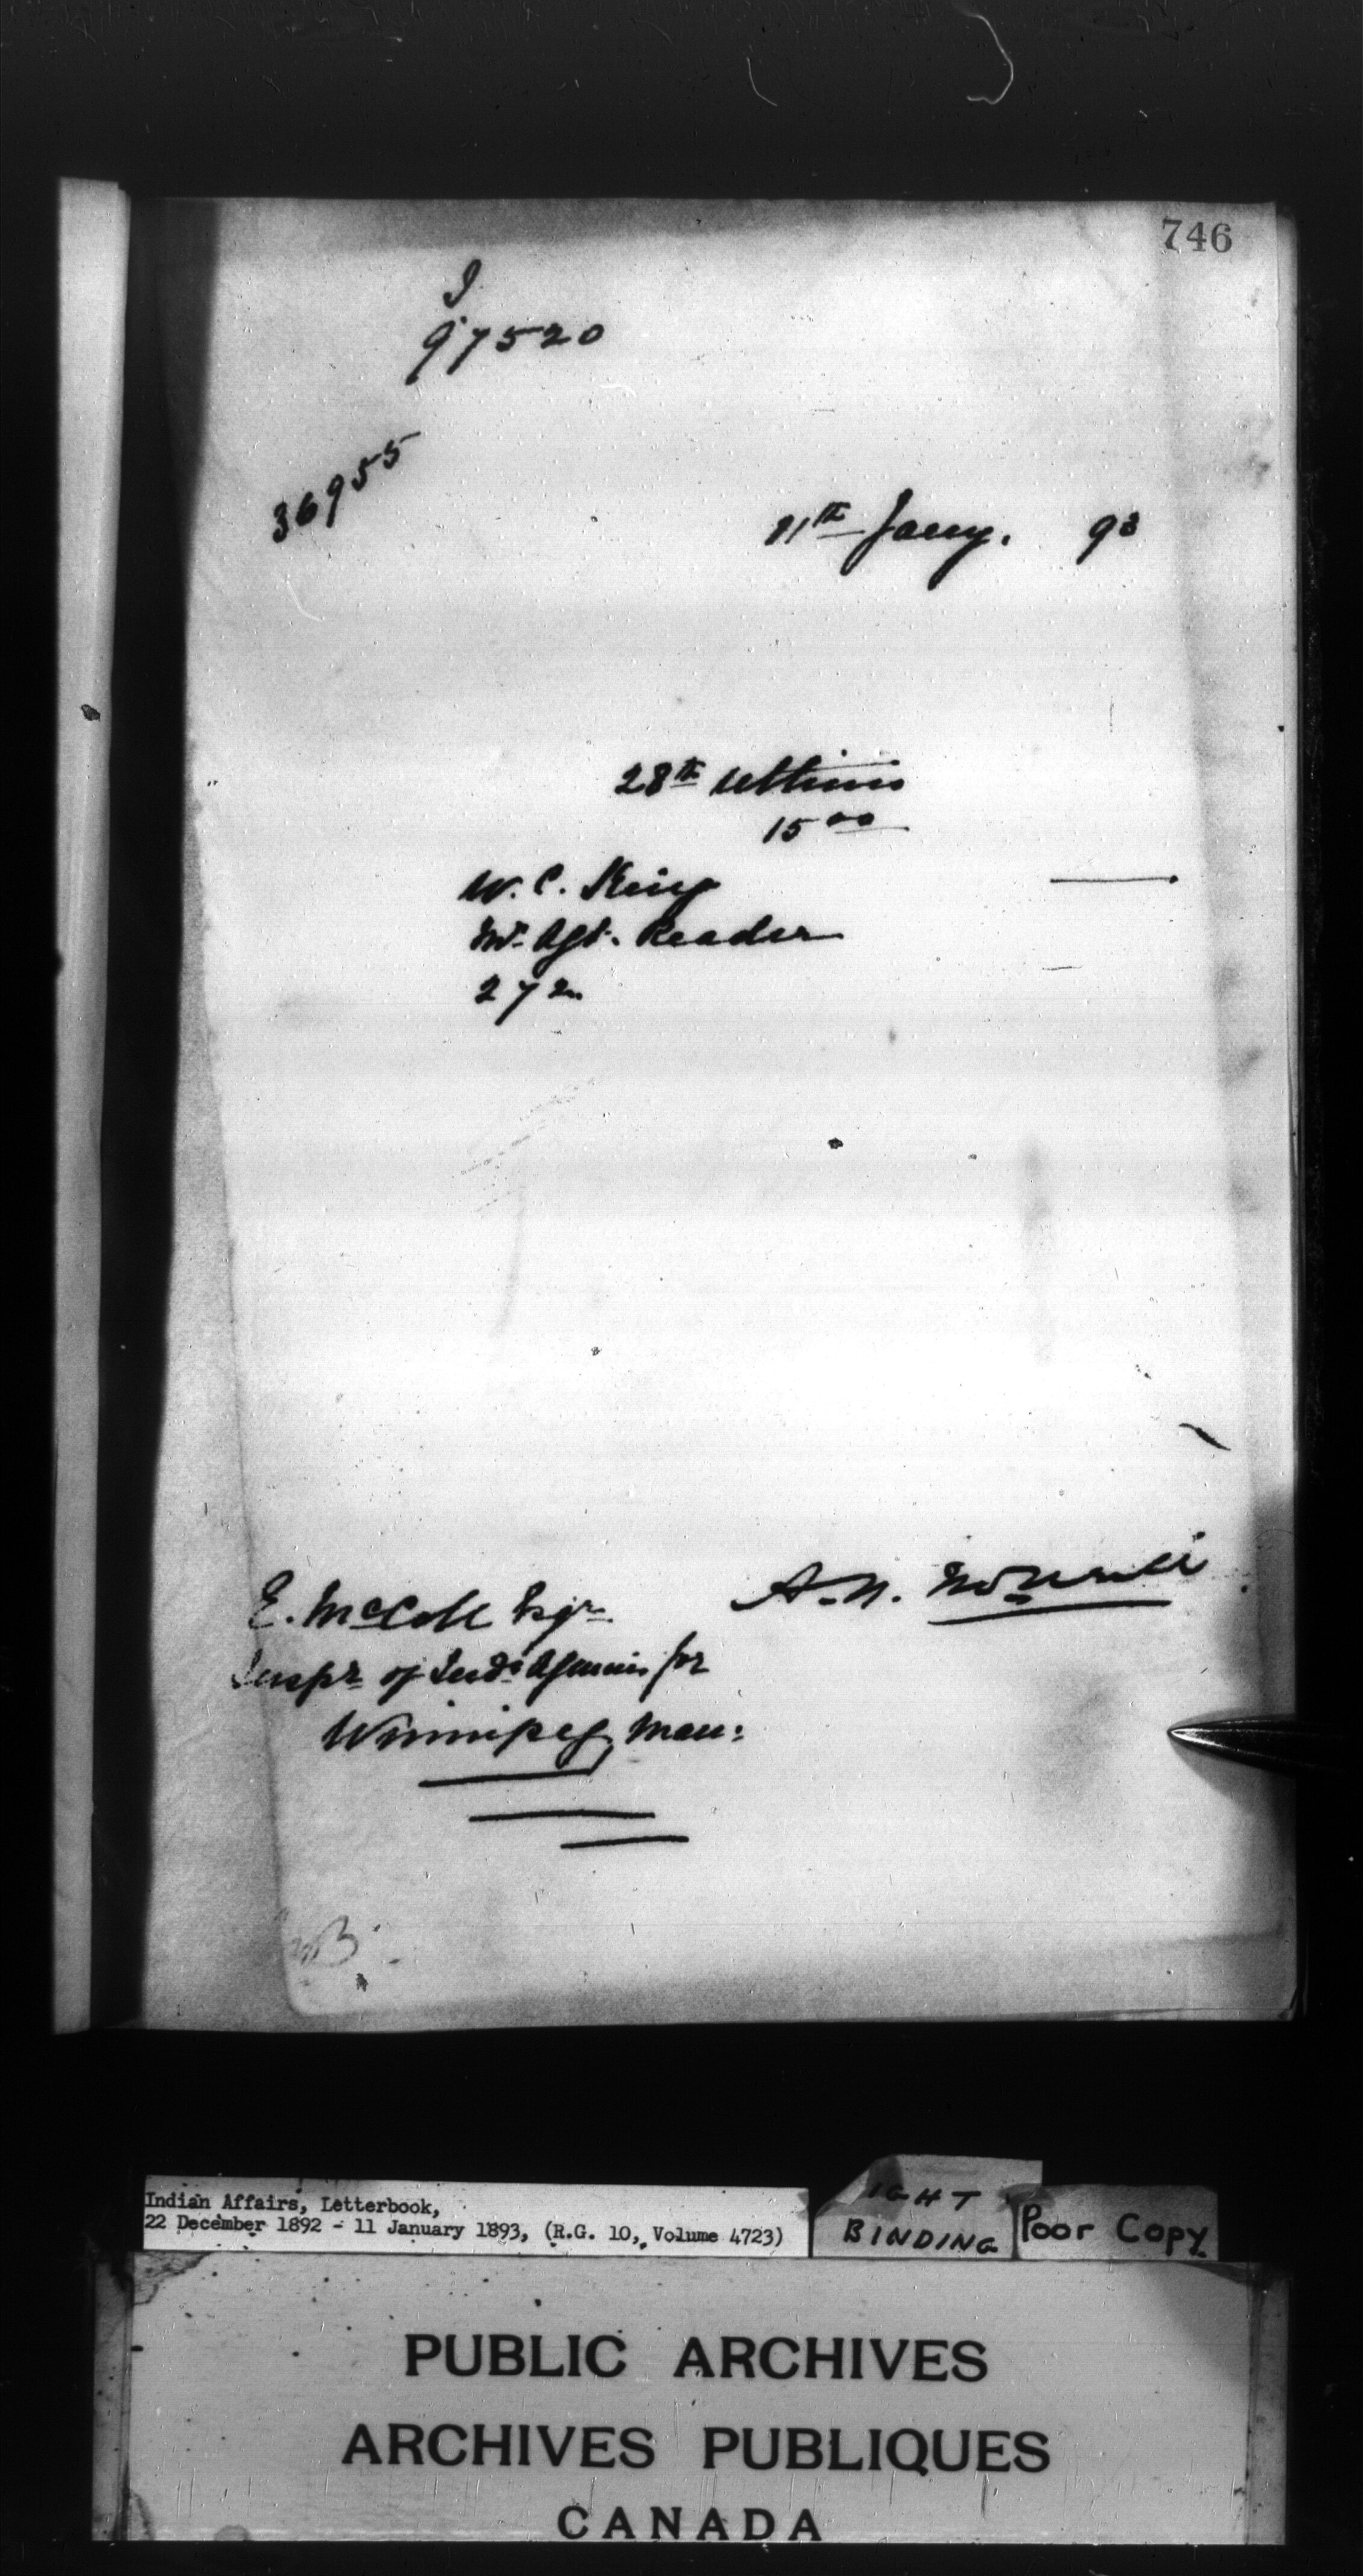 746
J
97520
36955
11th Jany. 93
28th ultimo
15 00
W. C. King
Agt. Reader
272
E. McColl Esqr.
A. N. McNeill
Inspr. of Inds. Agencies for
Winnipeg Man:
Indian Affairs, Letterbook,
22 December 1892 - 11 January 1893, (R.G. 10, Volume 4723)
IGHT
BINDING
Poor Copy
PUBLIC ARCHIVES
ARCHIVES PUBLIQUES
CANADA